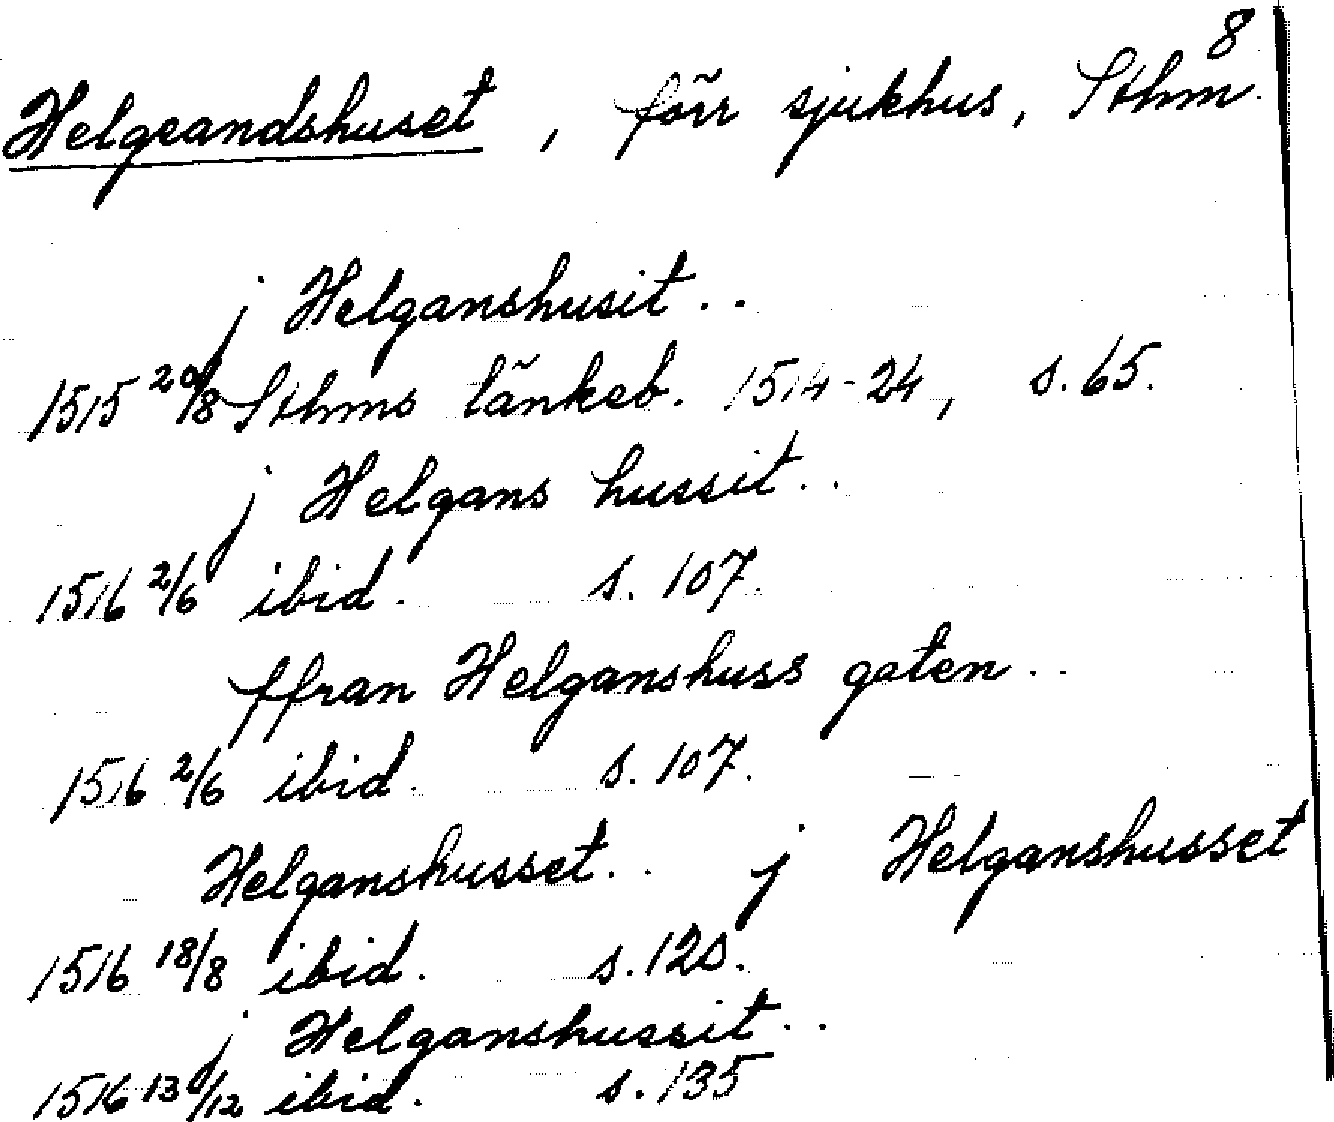 8
Helgeandshuset, förr sjukhus, Sthm.
j Helganshusit..
1515 20/8 Sthms tänkeb. 1514-24, s. 65.
j Helgans hussit..
1516 2/6 ibid. s. 107.
ffran Helganshuss gaten..
1516 2/6 ibid. s. 107.
Helganshusset.. j Helganshusset
1516 18/8 ibid. s. 120.
j Helganshussit..
1516 13/12 ibid. s. 135